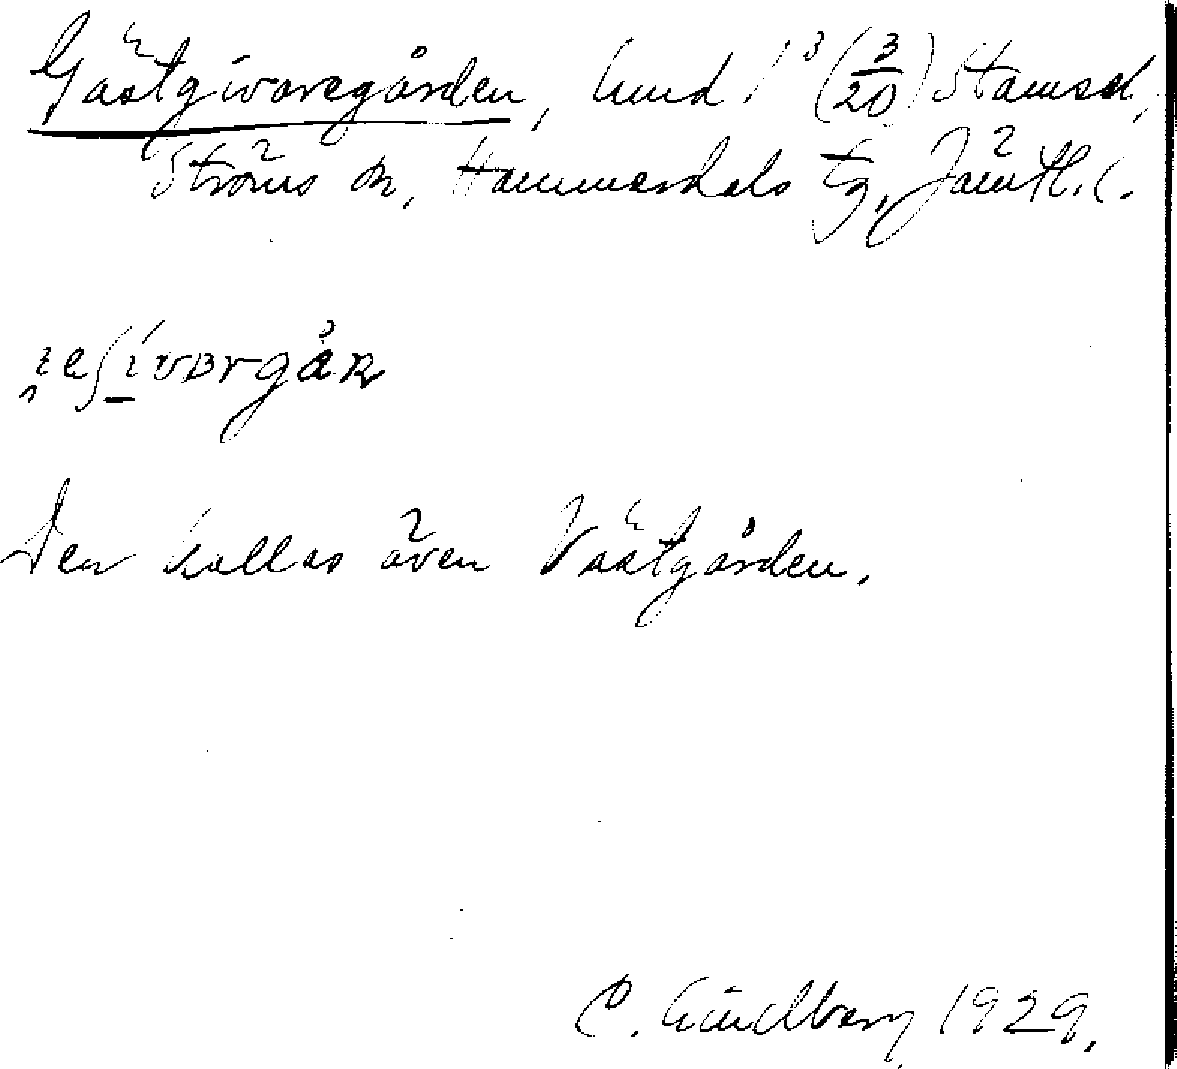 Gästgivaregården, Lund 1³ (3/20) Stamsel,
Ströms sn, Hammerdals tg, Jämtl. l.
Den kallas även Västgården.
C. Lindberg 1929.